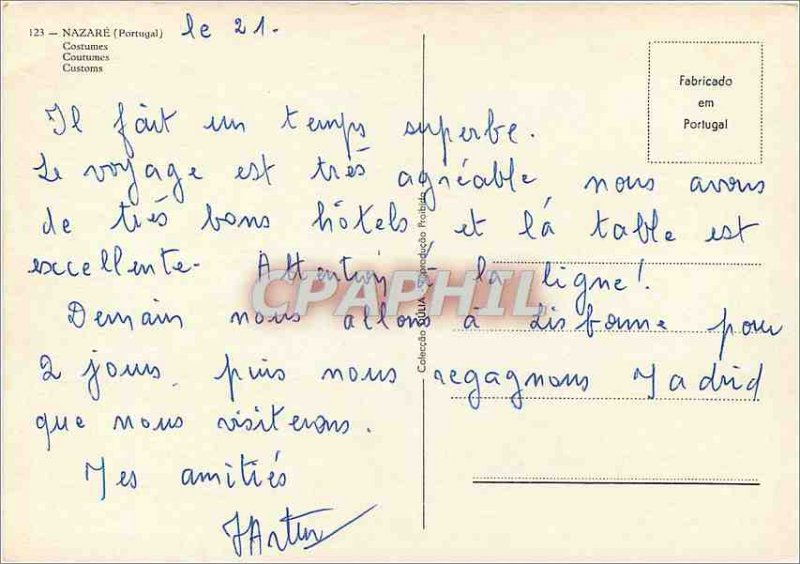 123 — NAZARÉ (Portugal)
Costumes
Coutumes
Customs
le 21.
Fabricado
em
Portugal
Il fait un temps superbe.
Le voyage est très agréable nous avons
de très bons hôtels et la table est
excellente. Attention à la ligne!
Demain nous allons à Lisbonne pour
2 jours, puis nous regagnons Madrid
que nous visiterons.
Mes amitiés
Colecção DÚLIA - Reprodução Proibida
CPAPHIL